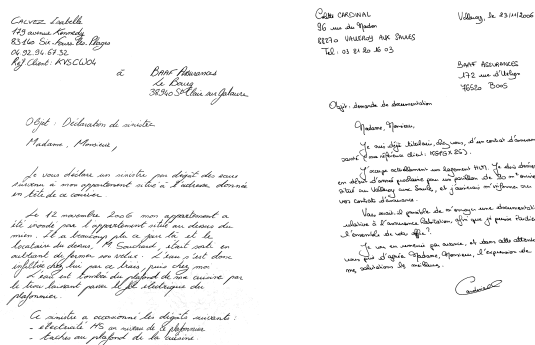 CALVEZ Isabelle
179 avenue Kennedy
83140 Six-Fours-les-Plages
04.92.94.67.32
Réf. Client : KVSCW04
à BAAF Assurances
Le Bourg
38940 St Clair sur Galaure
Objet : Déclaration de sinistre
Madame, Monsieur,
Je vous déclare un sinistre par dégât des eaux
survenu à mon appartement situé à l'adresse donnée
en tête de ce courrier.
Le 12 novembre 2006 mon appartement a
été inondé par l'appartement situé au dessus du
mien. Il a beaucoup plu ce jour là et le
locataire du dessus, Mr Souchaud, était sorti en
oubliant de fermer son velux. L'eau s'est donc
infiltrée chez lui par ce biais, puis chez moi.
L'eau est tombée du plafond de ma cuisine par
le trou laissant passer le fil électrique du
plafonnier.
Ce sinistre a occasionné les dégâts suivants :
- électricité HS au niveau de ce plafonnier
- taches au plafond de la cuisine.
Colette CARDINAL
96 rue du Moulin
88270 VALLEROY AUX SAULES
Tel : 03 81 20 16 03
Valleroy, le 23/11/2006
BAAF ASSURANCES
172 rue
76520 BOOS
Objet : demande de documentation
Madame, Monsieur,
Je suis déjà titulaire, chez vous, d'un contrat d'assurance
santé (ma référence client :
J'occupe actuellement un logement HLM. Je dois
en début d'année prochaine pour un pavillon de
situé au Valleroy aux Saules, et j'aimerais m'informer sur
vos contrats d'assurance.
Vous serait-il possible de m'envoyer une documentation
relative à l'assurance habitation, afin que je puisse étudier
l'ensemble de vos offres ?
Je vous en remercie par avance, et dans cette attente
vous prie d'agréer Madame, Monsieur, l'expression de
mes salutations les meilleures.
Cardinal